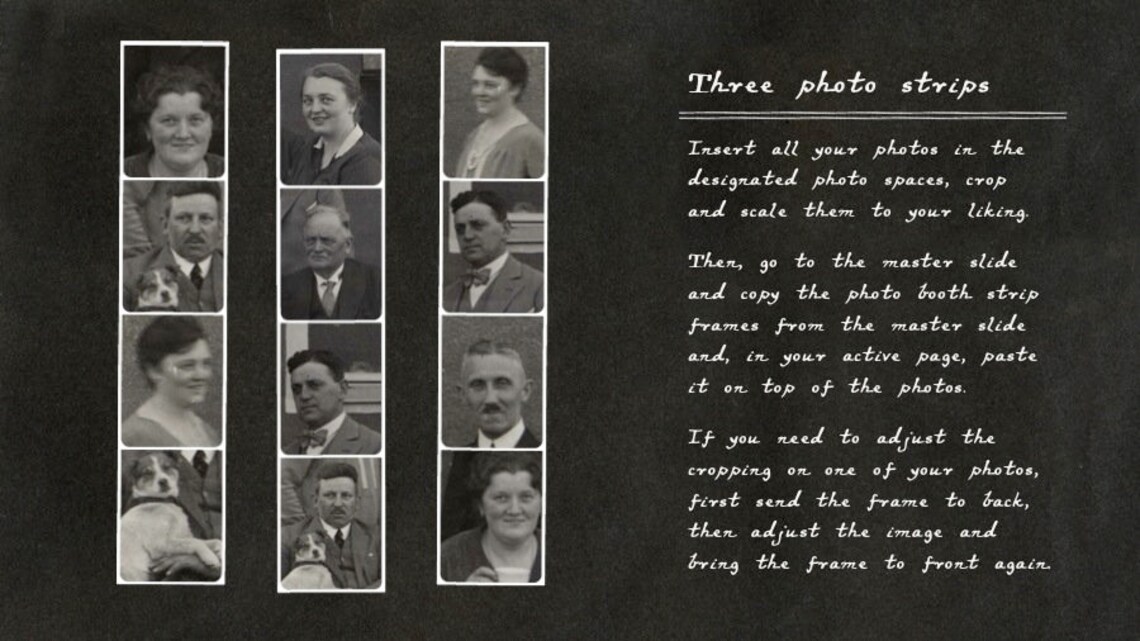 Three photo strips
Insert all your photos in the
designated photo spaces, crop
and scale them to your liking.
Then, go to the master slide
and copy the photo booth strip
frames from the master slide
and, in your active page, paste
it on top of the photos.
If you need to adjust the
cropping on one of your photos,
first send the frame to back,
then adjust the image and
bring the frame to front again.